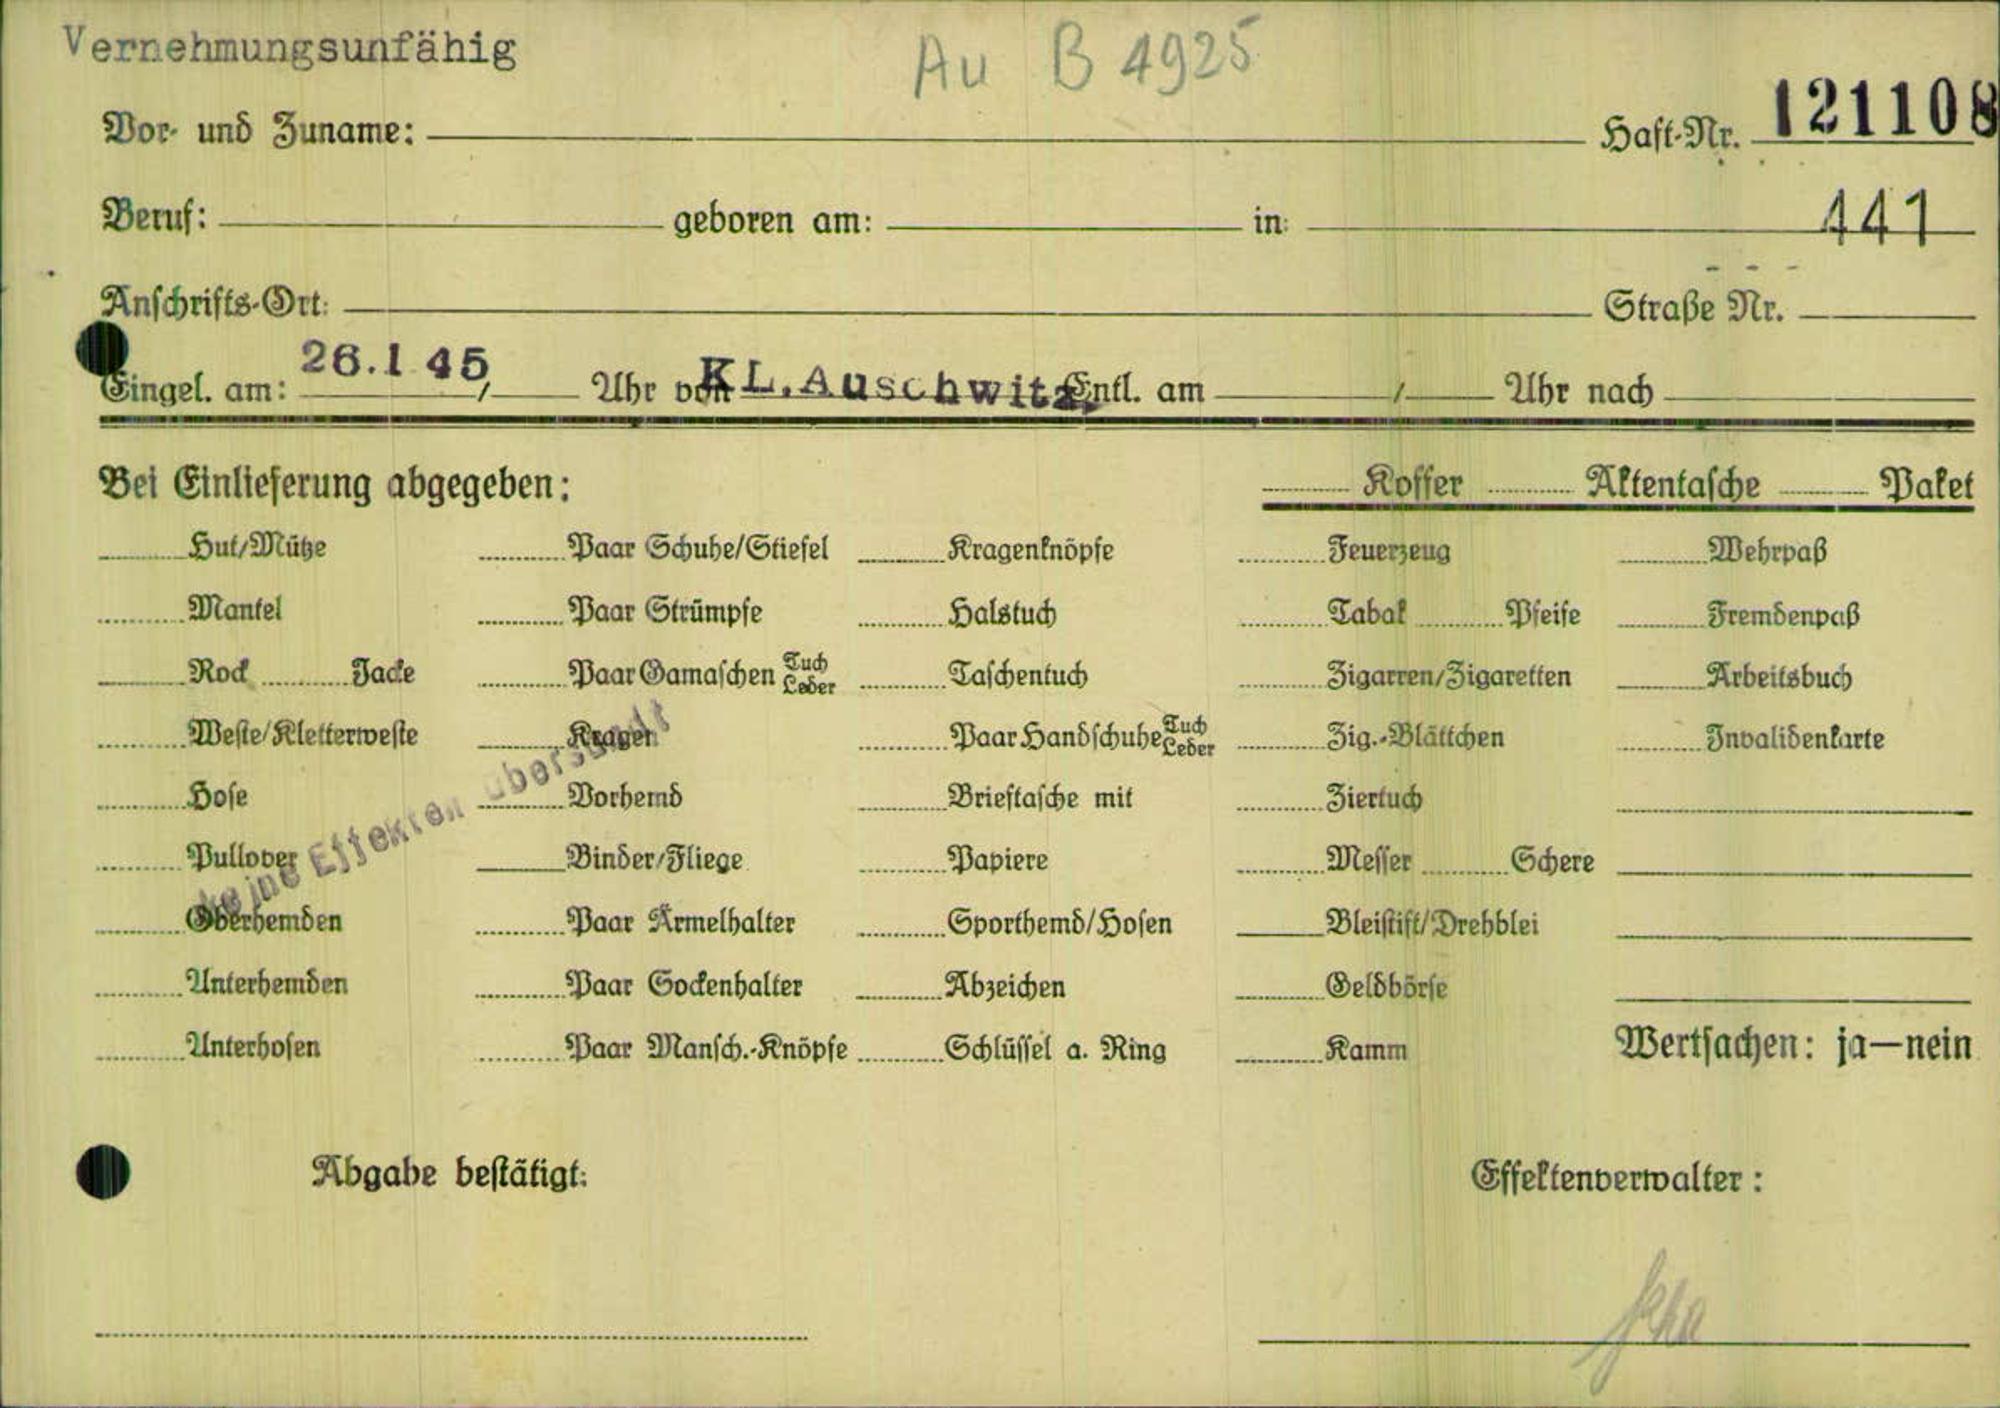 Vernehmungsunfähig
Au B 4925
Vor- und Zuname: Haft-Nr. 121108
Beruf: geboren am: in: 441
Anschrifts-Ort: Straße Nr.
Eingel. am: 26.1.45 / Uhr von KL.Auschwitz. Entl. am / Uhr nach
Bei Einlieferung abgegeben: Koffer Aktentasche Paket
Hut/Mütze Paar Schuhe/Stiefel Kragenknöpfe Feuerzeug Wehrpaß
Mantel Paar Strümpfe Halstuch Tabak Pfeife Fremdenpaß
Rock Jacke Paar Gamaschen Tuch Leder Taschentuch Zigarren/Zigaretten Arbeitsbuch
Weste/Kletterweste Kragen Paar Handschuhe Tuch Leder Zig.-Blättchen Invalidenkarte
Hose Vorhemd Brieftasche mit Ziertuch
Pullover Binder/Fliege Papiere Messer Schere
Oberhemden Paar Ärmelhalter Sporthemd/Hosen Bleistift/Drehblei
Unterhemden Paar Sockenhalter Abzeichen Geldbörse
Unterhosen Paar Mansch.-Knöpfe Schlüssel a. Ring Kamm Wertsachen: ja—nein
keine Effekten übersandt
Abgabe bestätigt: Effektenverwalter: